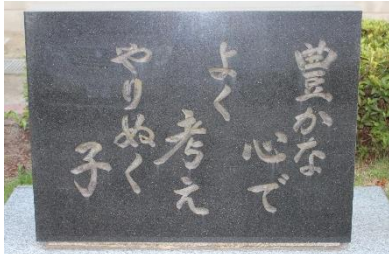 豊かな
心で
よく
考え
やりぬく
子